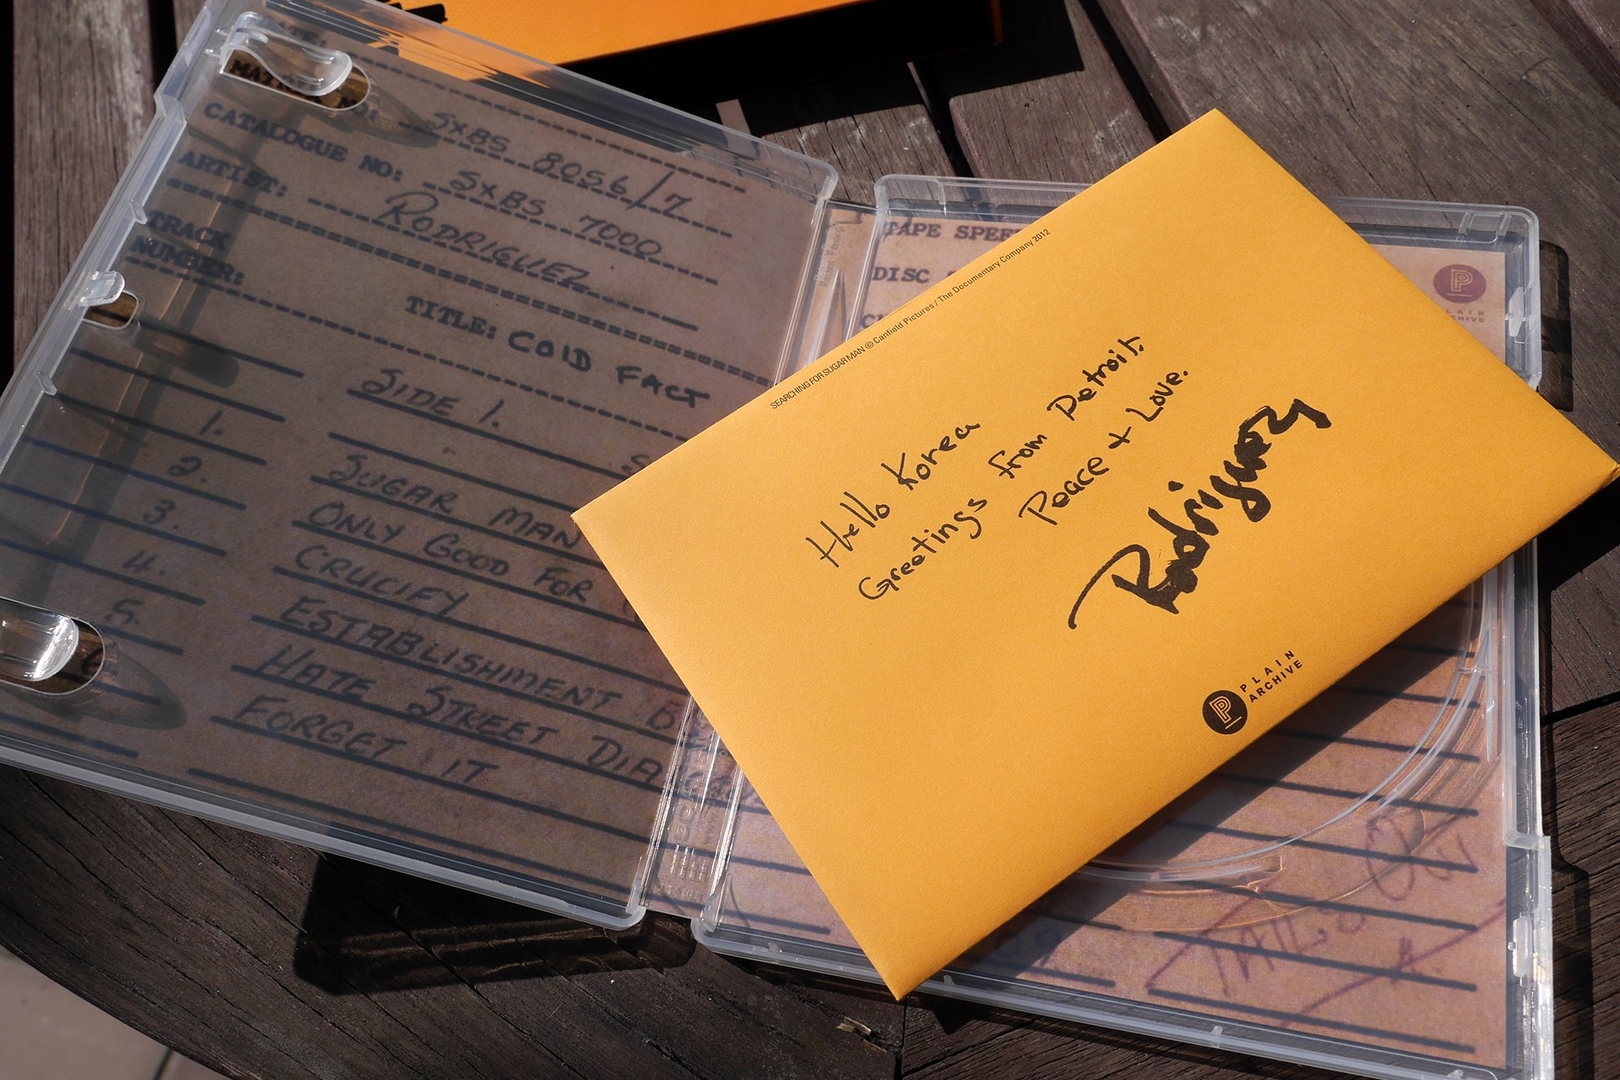 CATALOGUE NO:
ARTIST:
TRACK
NUMBER:
SXBS 8056/7
SXBS 7000
RODRIGUEZ
TITLE: COLD FACT
SIDE 1.
1. SUGAR MAN
2. ONLY GOOD FOR
3. CRUCIFY
4. ESTABLISHMENT B
5. HATE STREET DIA
FORGET IT
TAPE SPEE
DISC
SEARCHING FOR SUGAR MAN © Canfield Pictures / The Documentary Company 2012
Hello Korea
Greetings from Detroit.
Peace + Love.
Rodriguez
P PLAIN
ARCHIVE
P